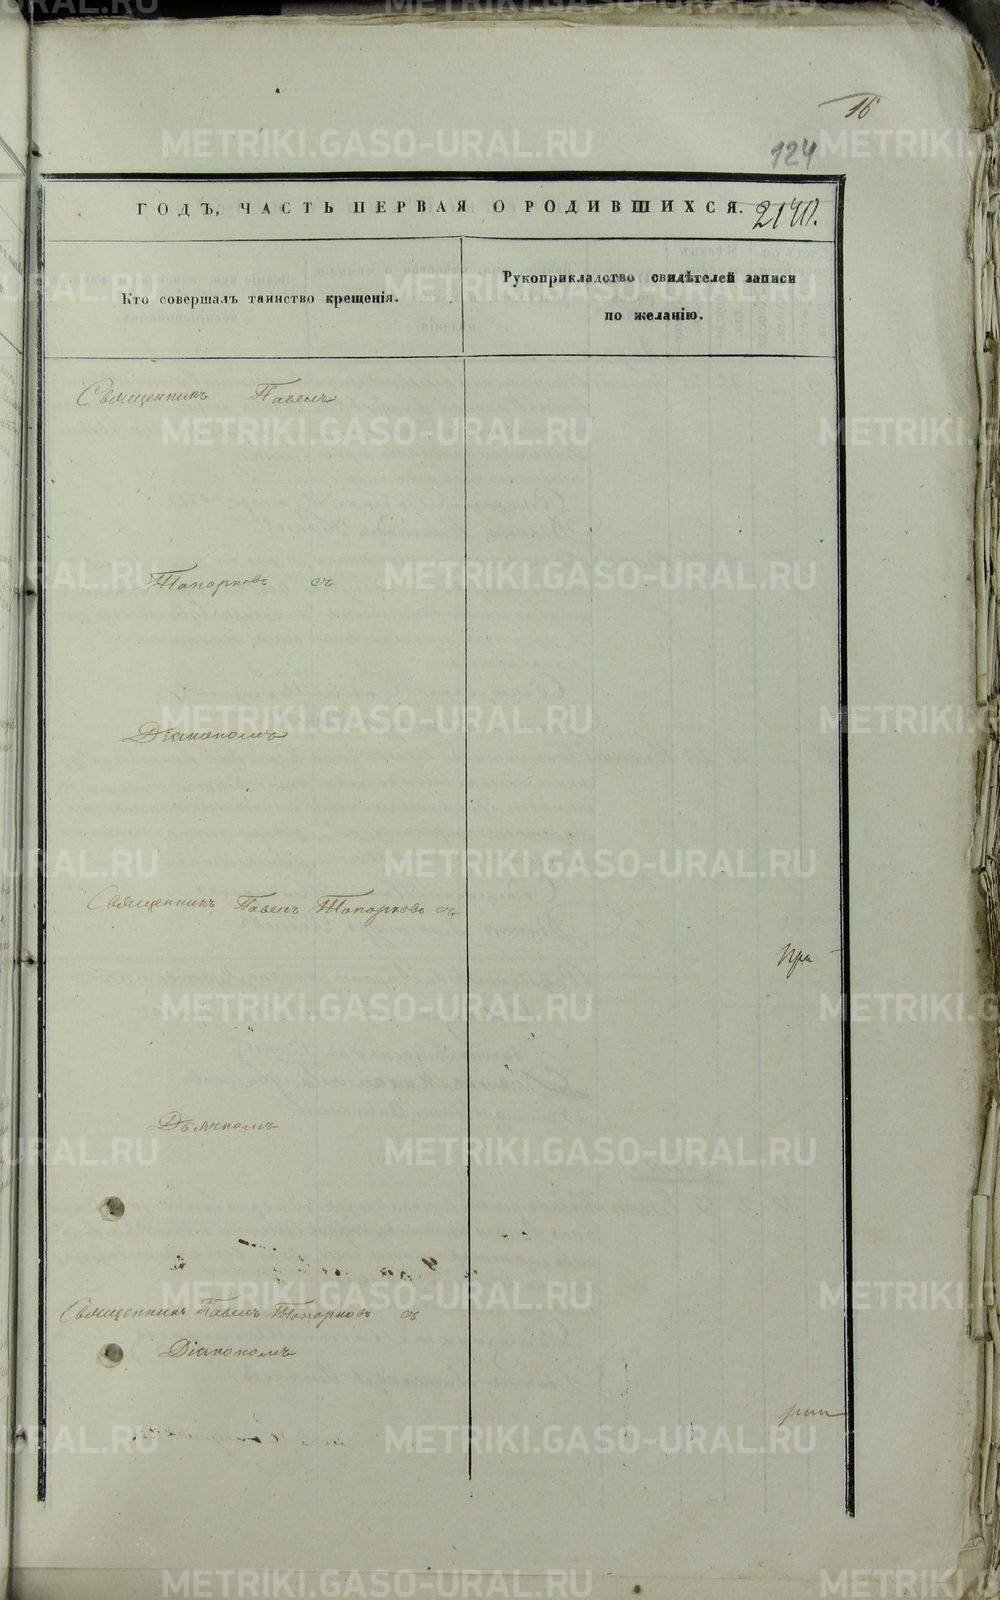 16
124
ГОДЪ, ЧАСТЬ ПЕРВАЯ О РОДИВШИХСЯ.
Кто совершалъ таинство крещенія.
Рукоприкладство свидѣтелей записи
по желанію.
Священникъ Павелъ
Топорковъ съ
Діакономъ
Священникъ Павелъ Топорковъ съ
При
Дьячкомъ
Священникъ Павелъ Топорковъ съ
Діакономъ
METRIKI.GASO-URAL.RU